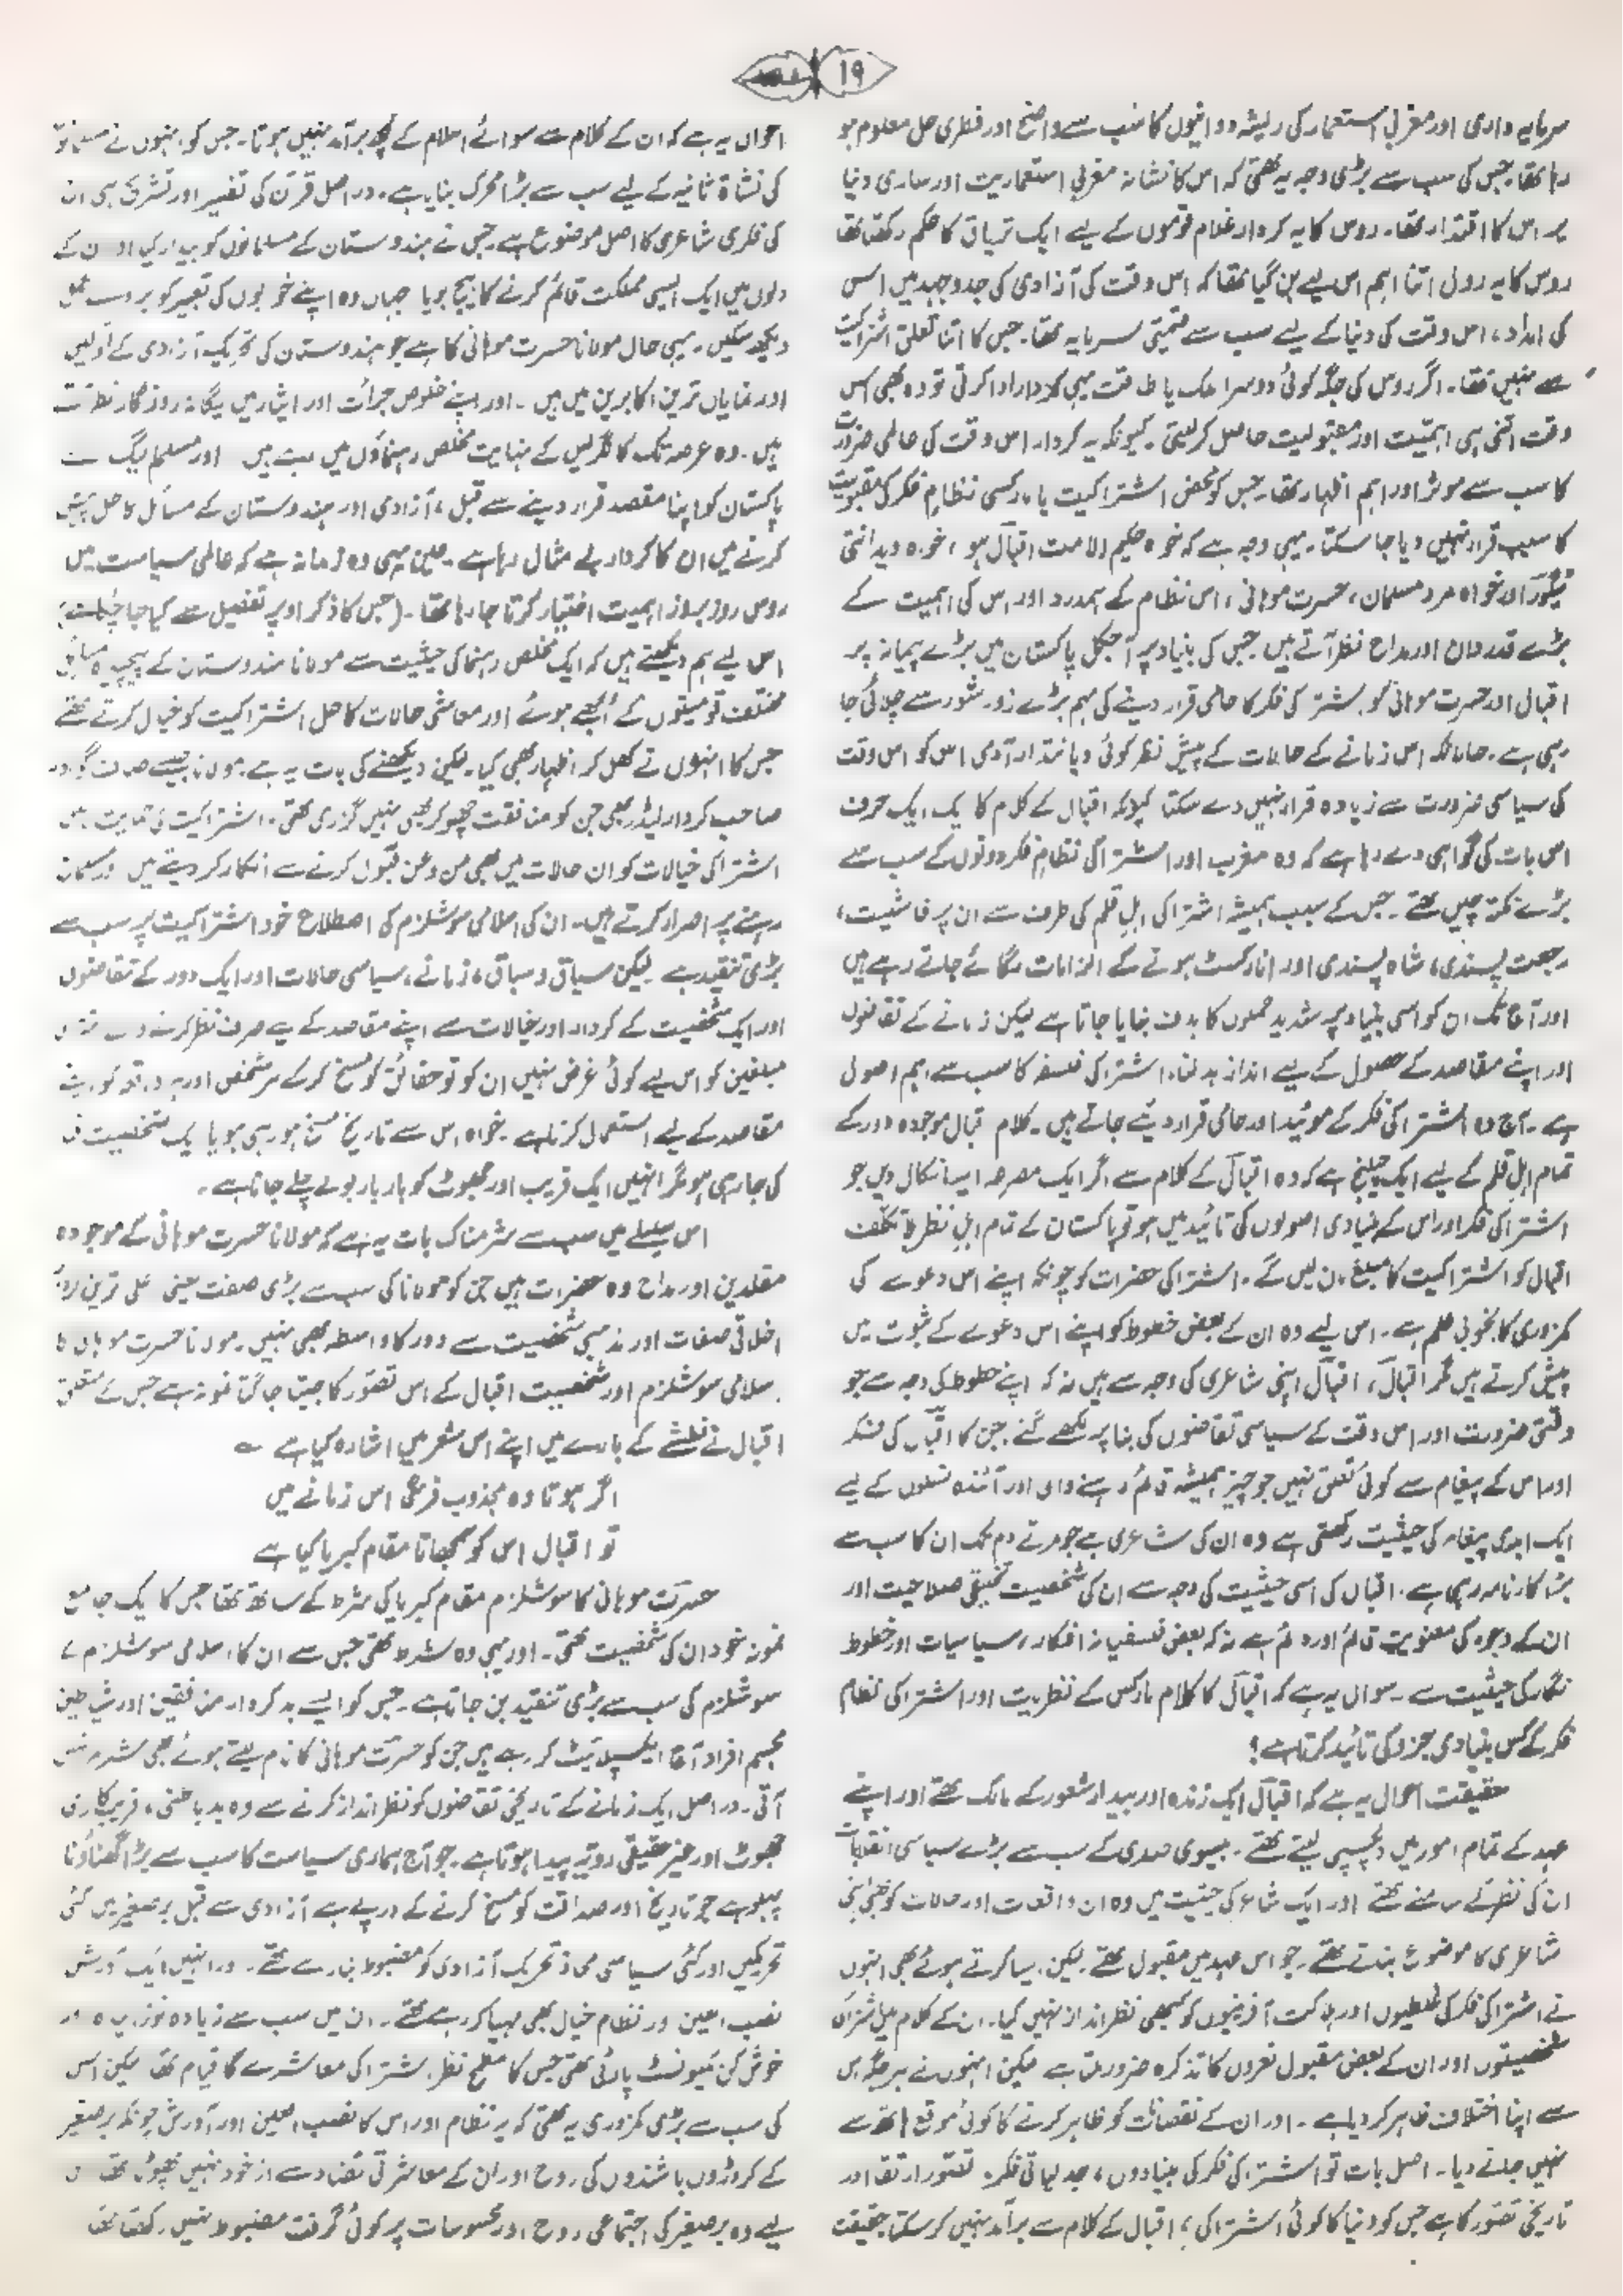 ۱۹
سرمایہ داری اور مغربی استعمار کی ریشہ دوانیوں کا سب سے واضح اور فطری حل معلوم ہو
رہا تھا۔ جس کی سب سے بڑی وجہ یہ تھی کہ اس کا نشانہ مغربی استعماریت اور ساری دنیا
پر اس کا اقتدار تھا۔ روس کا یہ کردار غلام قوموں کے لیے ایک تریاق کا حکم رکھتا تھا
روس کا یہ رول اتنا اہم اس لیے بن گیا تھا کہ اس وقت کی آزادی کی جدوجہد میں اس
کی امداد، اس وقت کی دنیا کے لیے سب سے قیمتی سرمایہ تھا۔ جس کا اتنا تعلق اشتراکیت
سے نہیں تھا۔ اگر روس کی جگہ کوئی دوسرا ملک یا طاقت یہی کردار ادا کرتی تو وہ بھی اس
وقت اتنی ہی اہمیت اور مقبولیت حاصل کر لیتی۔ کیونکہ یہ کردار اس وقت کی عالمی ضرورت
کا سب سے موثر اور اہم اظہار تھا۔ جس کو محض اشتراکیت یا مارکسی نظام فکر کی مقبولیت
کا سبب قرار نہیں دیا جا سکتا۔ یہی وجہ ہے کہ خواہ حکیم الامت اقبال ہو، خواہ ویدانتی
ٹیگور اور خواہ مرد مسلمان، حسرت موہانی، اس نظام کے ہمدرد اور اس کی اہمیت کے
بڑے قدردان اور مداح نظر آتے ہیں جس کی بنیاد پر آجکل پاکستان میں بڑے پیمانہ پر
اقبال اور حسرت موہانی کو اشتراکی فکر کا حامی قرار دینے کی مہم بڑے زور شور سے چلائی جا
رہی ہے۔ حالانکہ اس زمانے کے حالات کے پیش نظر کوئی دیانتدار آدمی اس کو اس وقت
کی سیاسی ضرورت سے زیادہ قرار نہیں دے سکتا کیونکہ اقبال کے کلام کا ایک ایک حرف
اس بات کی گواہی دے رہا ہے کہ وہ مغرب اور اشتراکی نظام فکر دونوں کے سب سے
بڑے نکتہ چیں تھے۔ جس کے سبب ہمیشہ اشتراکی اہل قلم کی طرف سے ان پر فاشیت،
رجعت پسندی، شاہ پسندی اور انارکسٹ ہونے کے الزامات لگائے جاتے رہے ہیں
اور آج تک ان کو اسی بنیاد پر شدید حملوں کا ہدف بنایا جاتا ہے لیکن زمانے کے تقاضوں
اور اپنے مقاصد کے حصول کے لیے انداز بدلنا، اشتراکی فلسفہ کا سب سے اہم اصول
ہے۔ آج وہ اشتراکی فکر کے موئید اور حامی قرار دیئے جاتے ہیں۔ کلام اقبال موجودہ دور کے
تمام اہل قلم کے لیے ایک چیلنج ہے کہ وہ اقبال کے کلام سے اگر ایک مصرعہ ایسا نکال دیں جو
اشتراکی فکر اور اس کے بنیادی اصولوں کی تائید میں ہو تو پاکستان کے تمام اہل نظر بلا تکلف
اقبال کو اشتراکیت کا مبلغ مان لیں گے۔ اشتراکی حضرات کو چونکہ اپنے اس دعوے کی
کمزوری کا بخوبی علم ہے۔ اس لیے وہ ان کے بعض خطوط کو اپنے اس دعوے کے ثبوت میں
پیش کرتے ہیں مگر اقبال، اقبال اپنی شاعری کی وجہ سے ہیں نہ کہ اپنے خطوط کی وجہ سے جو
وقتی ضرورت اور اس وقت کے سیاسی تقاضوں کی بنا پر لکھے گئے جن کا اقبال کی فکر
اور اس کے پیغام سے کوئی تعلق نہیں جو چیز ہمیشہ قائم رہنے والی اور آئندہ نسلوں کے لیے
ایک ابدی پیغام کی حیثیت رکھتی ہے وہ ان کی شاعری ہے جو مرتے دم تک ان کا سب سے
بڑا کارنامہ رہا ہے۔ اقبال کی اسی حیثیت کی وجہ سے ان کی شخصیت تخلیقی صلاحیت اور
ان کے وجود کی معنویت قائم اور دائم ہے نہ کہ بعض فلسفیانہ افکار، سیاسیات اور خطوط
نگار کی حیثیت سے۔ سوال یہ ہے کہ اقبال کا کلام مارکس کے نظریات اور اشتراکی نظام
فکر کے کس بنیادی جزو کی تائید کرتا ہے؟
حقیقت احوال یہ ہے کہ اقبال ایک زندہ اور بیدار شعور کے مالک تھے اور اپنے
عہد کے تمام امور میں دلچسپی لیتے تھے۔ بیسوی صدی کے سب سے بڑے سیاسی انقلابات
ان کی نظر کے سامنے تھے اور ایک شاعر کی حیثیت میں وہ ان واقعات اور حالات کو بھی اپنی
شاعری کا موضوع بناتے تھے۔ جو اس عہد میں مقبول تھے۔ لیکن ایسا کرتے ہوئے بھی انہوں
نے اشتراکی فکر کی غلطیوں اور ہلاکت آفرینوں کو کبھی نظر انداز نہیں کیا۔ ان کے کلام میں اشتراکی
شخصیتوں اور ان کے بعض مقبول نعروں کا تذکرہ ضرور ملتا ہے لیکن انہوں نے ہر جگہ اس
سے اپنا اختلاف ظاہر کر دیا ہے۔ اور ان کے نقصانات کو ظاہر کرنے کا کوئی موقع ہاتھ سے
نہیں جانے دیا۔ اصل بات تو اشتراکی فکر کی بنیادوں، جدلیاتی فکر، تصور ارتقا اور
تاریخی تصور کا ہے جس کو دنیا کا کوئی اشتراکی، اقبال کے کلام سے برآمد نہیں کر سکتا۔ حقیقت
احوال یہ ہے کہ ان کے کلام سے سوائے اسلام کے کچھ برآمد نہیں ہوتا۔ جس کو انہوں نے مسلمانوں
کی نشاۃ ثانیہ کے لیے سب سے بڑا محرک بنایا ہے۔ دراصل قرآن کی تفسیر اور تشریح ہی ان
کی فکری شاعری کا اصل موضوع ہے جس نے ہندوستان کے مسلمانوں کو بیدار کیا اور ان کے
دلوں میں ایک ایسی مملکت قائم کرنے کا بیج بویا جہاں وہ اپنے خوابوں کی تعبیر کو بروئے عمل
دیکھ سکیں۔ یہی حال مولانا حسرت موہانی کا ہے جو ہندوستان کی تحریک آزادی کے اولیں
اور نمایاں ترین اکابرین میں ہیں۔ اور اپنے خلوص جرأت اور ایثار میں یگانہ روزگار نظر آتے
ہیں۔ وہ عرصہ تک کانگریس کے نہایت مخلص رہنماؤں میں رہے ہیں اور مسلم لیگ
پاکستان کو اپنا مقصد قرار دینے سے قبل، آزادی اور ہندوستان کے مسائل کا حل پیش
کرنے میں ان کا کردار بے مثال رہا ہے۔ عین یہی وہ زمانہ ہے کہ عالمی سیاست میں
روس روز بروز اہمیت اختیار کرتا جا رہا تھا۔ (جس کا ذکر اوپر تفصیل سے کیا جا چکا ہے)
اس لیے ہم دیکھتے ہیں کہ ایک مخلص رہنما کی حیثیت سے مولانا ہندوستان کے پیچیدہ مسائل
مختلف قومیتوں کے الجھے ہوئے اور معاشی حالات کا حل اشتراکیت کو خیال کرتے تھے
جس کا انہوں نے کھل کر اظہار بھی کیا۔ لیکن دیکھنے کی بات یہ ہے۔ مولانا جیسے صاف گو اور
صاحب کردار لیڈر بھی جن کو منافقت چھو کر بھی نہیں گزری تھی۔ اشتراکیت کی حمایت میں
اشتراکی خیالات کو ان حالات میں بھی من و عن قبول کرنے سے انکار کر دیتے ہیں اور مسلمان
رہنے پر اصرار کرتے ہیں۔ ان کی اسلامی سوشلزم کی اصطلاح خود اشتراکیت پر سب سے
بڑی تنقید ہے لیکن سیاق و سباق، زمانے، سیاسی حالات اور ایک دور کے تقاضوں
اور ایک شخصیت کے کردار اور خیالات سے اپنے مقاصد کے لیے صرف نظر کرنے والے
مبلغین کو اس لیے کوئی غرض نہیں ان کو تو حقائق کو مسخ کر کے ہر شخص اور ہر واقعہ کو اپنے
مقاصد کے لیے استعمال کرنا ہے۔ خواہ اس سے تاریخ مسخ ہو رہی ہو یا ایک شخصیت
کی جا رہی ہو مگر انہیں ایک فریب اور جھوٹ کو بار بار بولے چلے جانا ہے۔
اس سلسلے میں سب سے شرمناک بات یہ ہے کہ مولانا حسرت موہانی کے موجودہ
مقلدین اور مداح وہ حضرات ہیں جن کو مولانا کی سب سے بڑی صفت یعنی اعلی ترین
اخلاقی صفات اور مذہبی شخصیت سے دور کا واسطہ بھی نہیں۔ مولانا حسرت موہانی کا
اسلامی سوشلزم اور شخصیت اقبال کے اس تصور کا جیتا جاگتا نمونہ ہے جس کے متعلق
اقبال نے نطشے کے بارے میں اپنے اس شعر میں اشارہ کیا ہے
اگر ہوتا وہ مجذوب فرنگی اس زمانے میں
تو اقبال اس کو سمجھاتا مقام کبریا کیا ہے
حسرت موہانی کا سوشلزم مقام کبریا کی شرط کے ساتھ تھا جس کا ایک جامع
نمونہ خود ان کی شخصیت تھی۔ اور یہی وہ شرط تھی جس سے ان کا، اسلامی سوشلزم
سوشلزم کی سب سے بڑی تنقید بن جاتا ہے۔ جس کو ایسے بد کردار منافقین اور شیاطین
مجسم افراد آج ایکسپلائیٹ کر رہے ہیں جن کو حسرت موہانی کا نام لیتے ہوئے بھی شرم نہیں
آتی۔ دراصل ایک زمانے کے تاریخی تقاضوں کو نظر انداز کرنے سے وہ بدباطنی، فریب کاری
جھوٹ اور غیر حقیقی رویہ پیدا ہوتا ہے۔ جو آج ہماری سیاست کا سب سے بڑا گھناؤنا
پہلو ہے جو تاریخ اور صداقت کو مسخ کرنے کے درپے ہے آزادی سے قبل برصغیر میں کئی
تحریکیں اور کئی سیاسی محاذ تحریک آزادی کو مضبوط بنا رہے تھے۔ اور انہیں ایک آدرش
نصب العین اور نظام خیال بھی مہیا کر رہے تھے۔ ان میں سب سے زیادہ نوزائیدہ اور
خوش کن کمیونسٹ پارٹی تھی جس کا مطمح نظر اشتراکی معاشرے کا قیام تھا لیکن اس
کی سب سے بڑی کمزوری یہ تھی کہ یہ نظام اور اس کا نصب العین اور آدرش چونکہ برصغیر
کے کروڑوں باشندوں کی روح اور ان کے معاشرتی تضاد سے از خود نہیں پھوٹا تھا
لیے وہ برصغیر کی اجتماعی روح اور محسوسات پر کوئی گرفت مضبوط نہیں رکھتا تھا